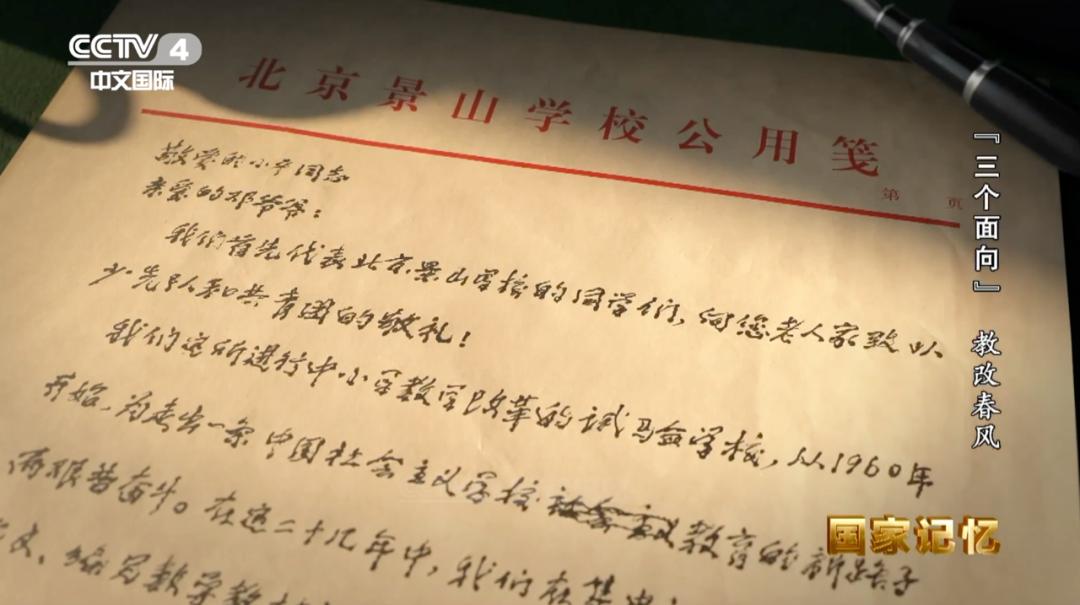 CCTV 4
中文国际
北京景山学校公用笺
第 页
敬爱的小平同志
亲爱的邓爷爷：
我们首先代表北京景山学校的同学们，向您老人家致以
少先队和共青团的敬礼！
我们这所进行中小学教学改革的试验学校，从1960年
开始，为走出一条中国社会主义学校社会主义教育的新路子
而艰苦奋斗。在这二十几年中，我们在集中
文、编写数学教
『三个面向』 教改春风
国家记忆